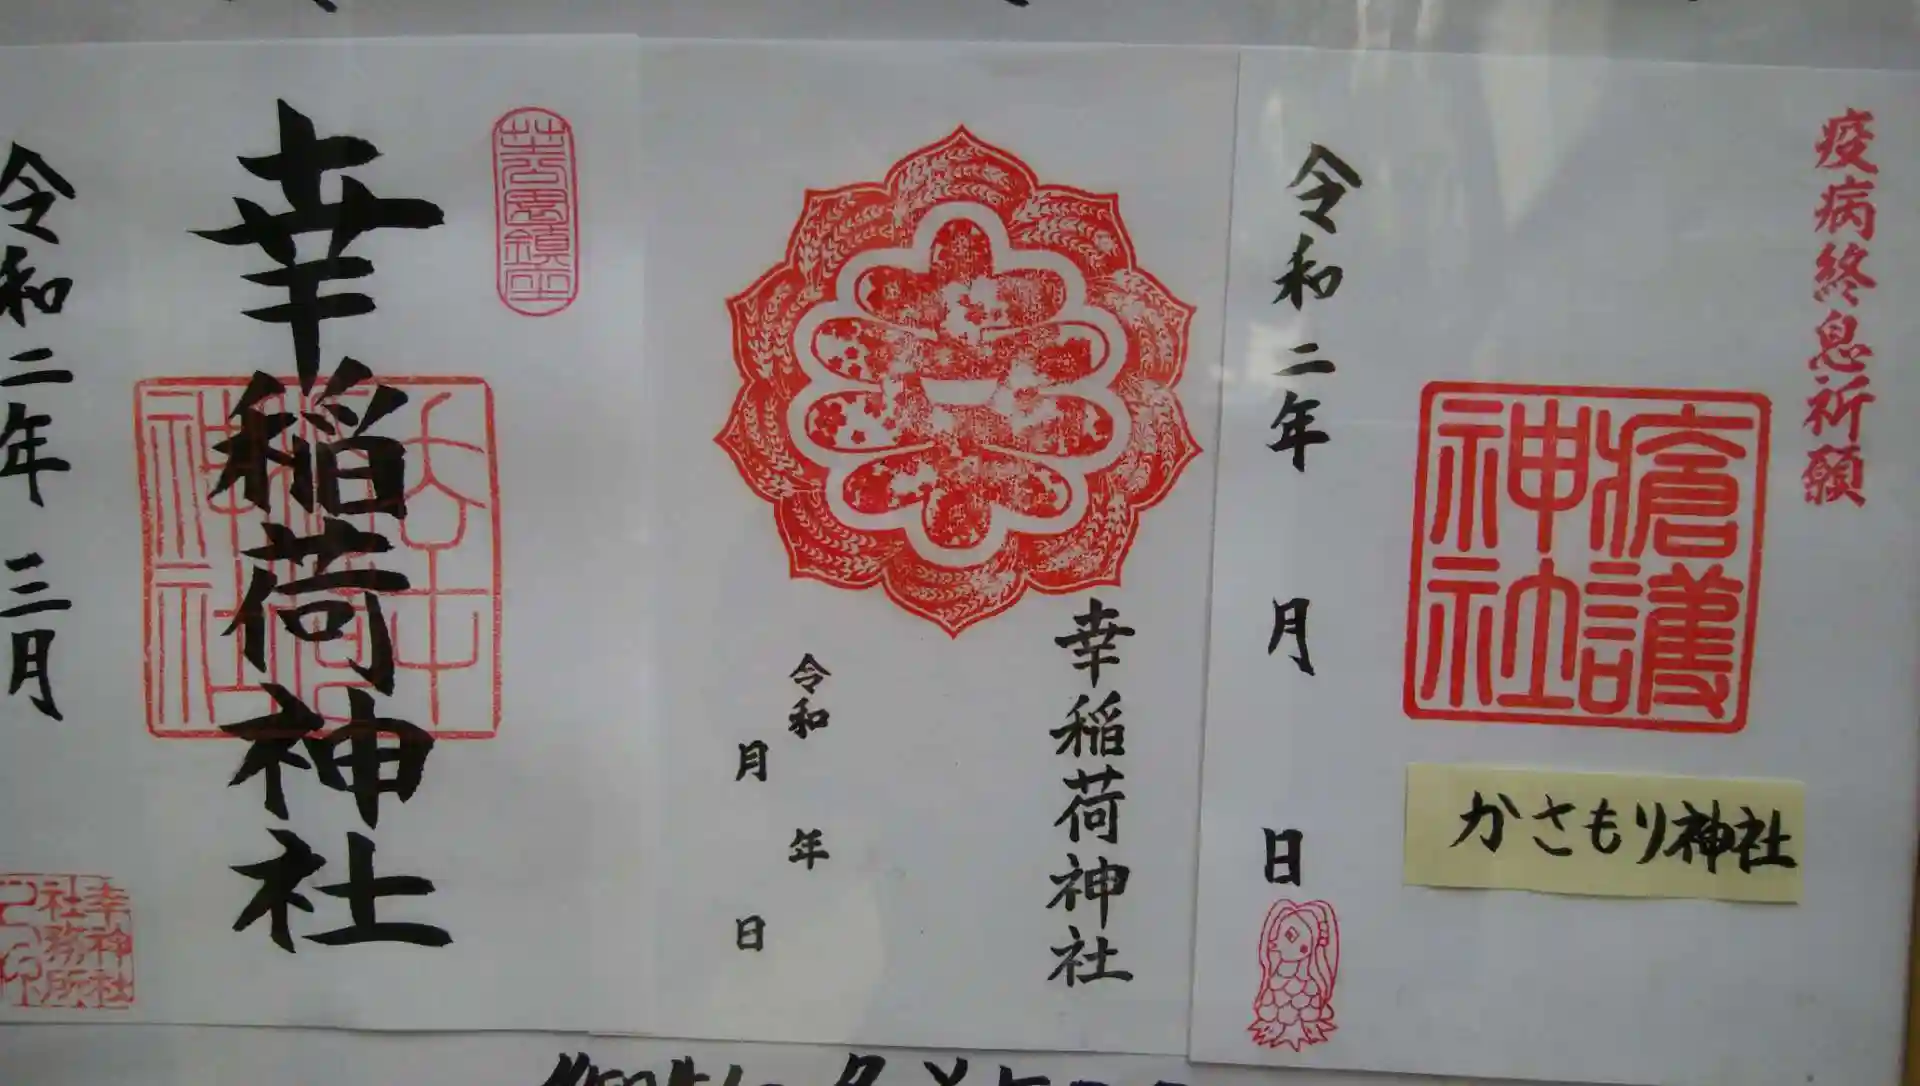 芝公園鎮座
幸稲荷神社
令和二年 三月
幸神社
社務所
幸稲荷神社
令和 年
月 日
疫病終息祈願
瘡護
神社
かさもり神社
令和二年 月 日